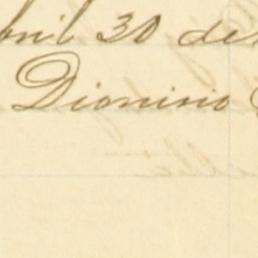 Abril 30 de
Dionisio